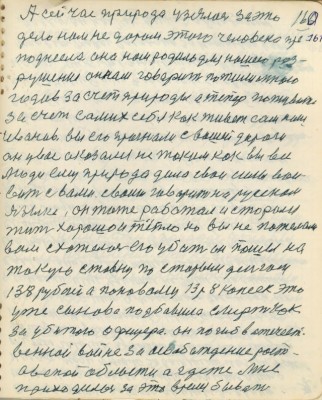 А сейчас природа взялась за это 160
дело нам не даром этого человека пре
поднесла она нам родила для нашего раз-
рушения он нам говорит пожили много
годов за счет природы а теперь поживите
за счет самих себя как живет сам наш
Иванов вы его прогнали с вашей дороги
он у вас оказался не таким как вы все
люди ему природа дала свои силы гово
рить с вами своим говорит на русском
языке, он тоже работал и старался
жить хорошо и тёпло но вы не пожелали
вам схотелося его убить он пошел на
такую ставку по старым деньгам
138 рублей а по новому 13 р 8 копеек это
уже сынова подбавила смерть как
за убитого офицера. он погиб в отечест-
венной войне за освобождение рост-
овской области а где мне
приходилось за это время бывать